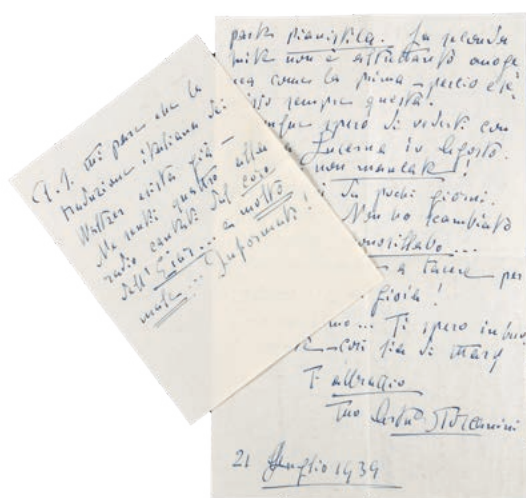 parte pianistica. La seconda
non è altrettanto omoge
nea come la prima – perciò ese
sempre questa.
spero di vederti con
Lucerna in Agosto.
non mancate!
in pochi giorni.
Non ho cambiato
monosillabo...
a tacere per
gioia!
Ti spero in buo
così sia di Mary
T'abbraccio
tuo Arturo Toscanini
21 Luglio 1939
mi pare che la
traduzione italiana dei
Waltzer esista già –
Ne sentii quattro alla
radio cantati dal coro
dell'Eiar... molto
male... Informati!